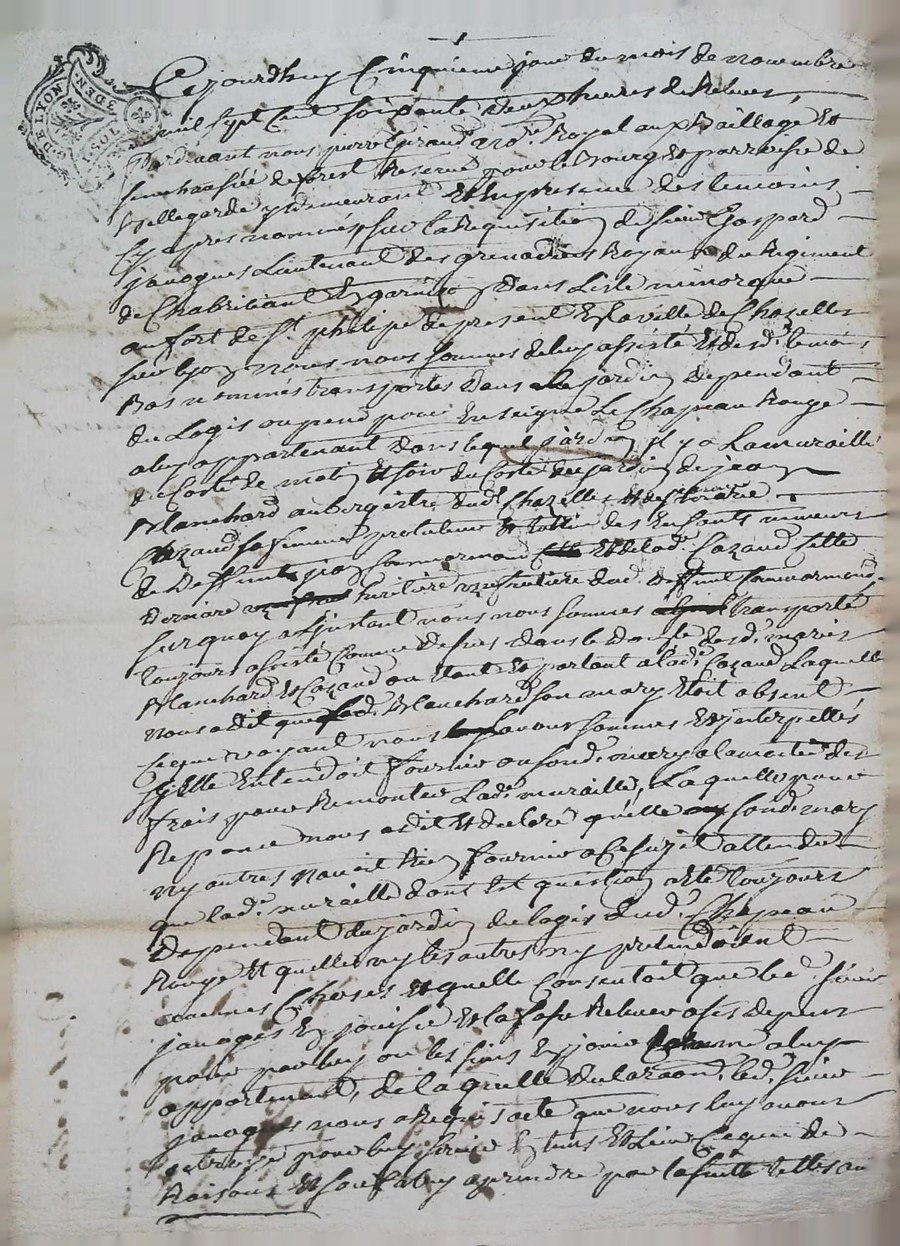 Cejourdhuy Cinquieme jour du mois de novembre
mil sept Cent soixante deux heures de Relevée,
Pardevant nous pierre Giraud no.re Royal aux Bailliage Et
senechaussée de forest Reservé pour le bourg Et parroisse de
Bellegarde y demeurant Et En presence des temoins
Cy apres nommés, sur la Requisition de sieur Gaspard
janoques Lieutenant des grenadiers Royaux du Regiment
de Chabrillant En garnison Dans Lisle minorque
au fort de St philipe de present En la ville de Chaselles
sur lyon nous nous sommes de luy assisté Et desd. temoins
Bas nommés transportés Dans le jardin Dependant
du Logis ou pend pour Enseigne Le Chapeau Rouge
a luy appartenant Dans lequel jardin il y a La muraille
du Costé de matin Et soir du Costé du jardin de jean
Blanchard aubergiste dud. Chazelles Et de
Cazaud sa femme des Enfants mineurs
de Deffunt Et de lad. Cazaud Celle
Derniere heritiere usufruitiere dud. Deffunt
sur quoy a L'instant nous nous sommes transporté
Toujours assisté Comme Dessus dans le Domicile desd. mariés
Blanchard Et Cazaud ou Etant Et parlant a lad. Cazaud Laquelle
nous a dit que led. Blanchard son mary Etoit absent
Ce que voyant nous L'avons sommés Et interpellés
sy Elle Entendoit fournir ou sond. mary a la moitié des
frais pour Remonter Lad. muraille, Laquelle pour
Reponce nous a dit Et declaré qu'elle ny sond. mary
ny autres n'avoit Rien fournir a Ce sujet attendu
que lad. muraille dont Est question a Eté Toujours
Dependant du jardin du logis dud. Chapeau
Rouge Et quelle ny les autres ny pretendoient
aucunes Choses Et quelle Consentoit que led. sieur
janoques En jouisse Et la fasse Relever a ses Depens
pour par luy ou les siens En jouir Comme a luy
appartenant, de laquelle Declaration, led. sieur
janoques nous a Requis acte que nous luy avons
octroyé pour luy servir En tems Et Lieu Ce que de
Raison Et sauf a luy a prendre par la suitte telles